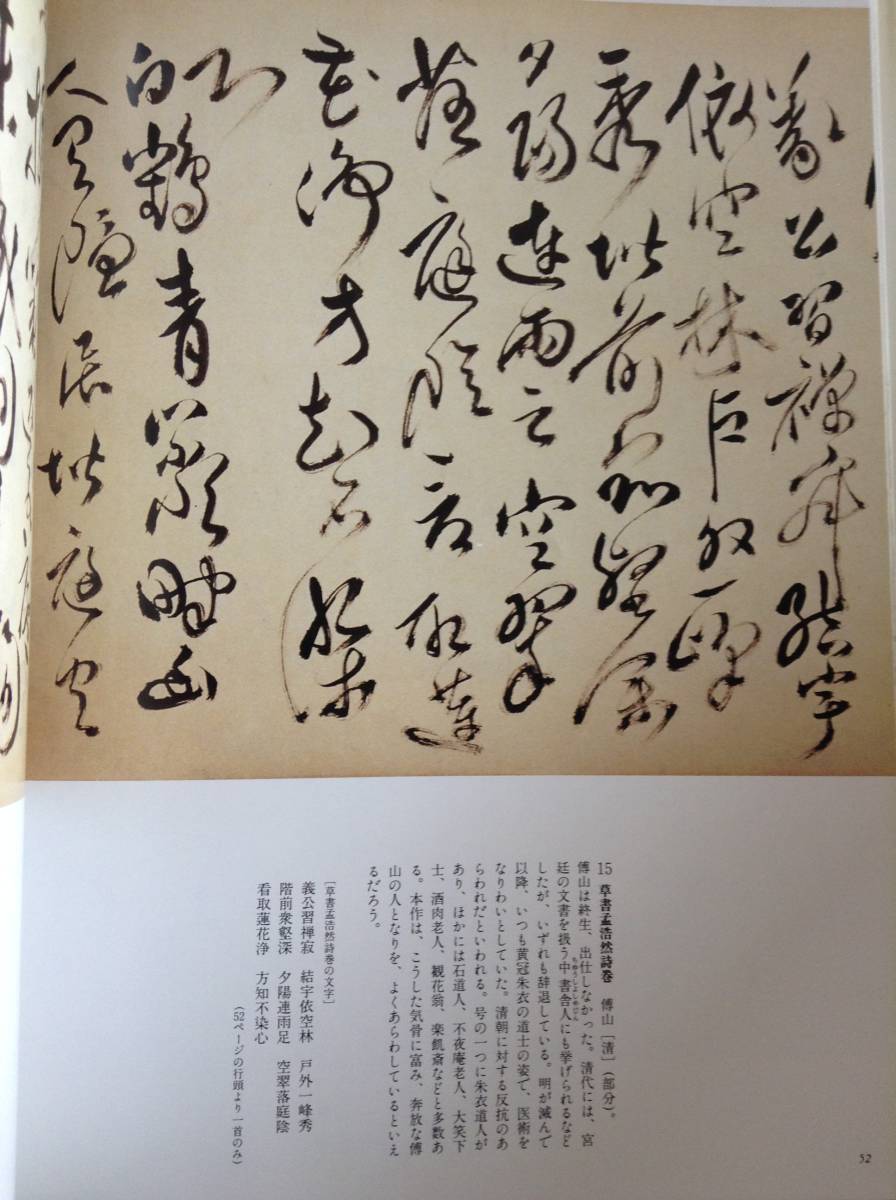 義公習禪寂結宇
依空林戶外一峰
秀堦前衆壑深
夕陽連雨足空翠
落庭陰看取蓮
花淨方知不染
心
白鶴青巖畔幽
人有隱居堦庭空
15 草書孟浩然詩巻 傅山［清］（部分）。
傅山は終生、出仕しなかった。清代には、宮
廷の文書を扱う中書舎人にも挙げられるなど
ちゅうしょしゃじん
したが、いずれも辞退している。明が滅んで
以降、いつも黄冠朱衣の道士の姿で、医術を
なりわいとしていた。清朝に対する反抗のあ
らわれだといわれる。号の一つに朱衣道人が
あり、ほかには石道人、不夜庵老人、大笑下
士、酒肉老人、観花翁、楽飢斎などと多数あ
る。本作は、こうした気骨に富み、奔放な傅
山の人となりを、よくあらわしているといえ
るだろう。
［草書孟浩然詩巻の文字］
義公習禅寂 結宇依空林 戸外一峰秀
階前衆壑深 夕陽連雨足 空翠落庭陰
看取蓮花浄 方知不染心
（52ページの行頭より一首のみ）
52